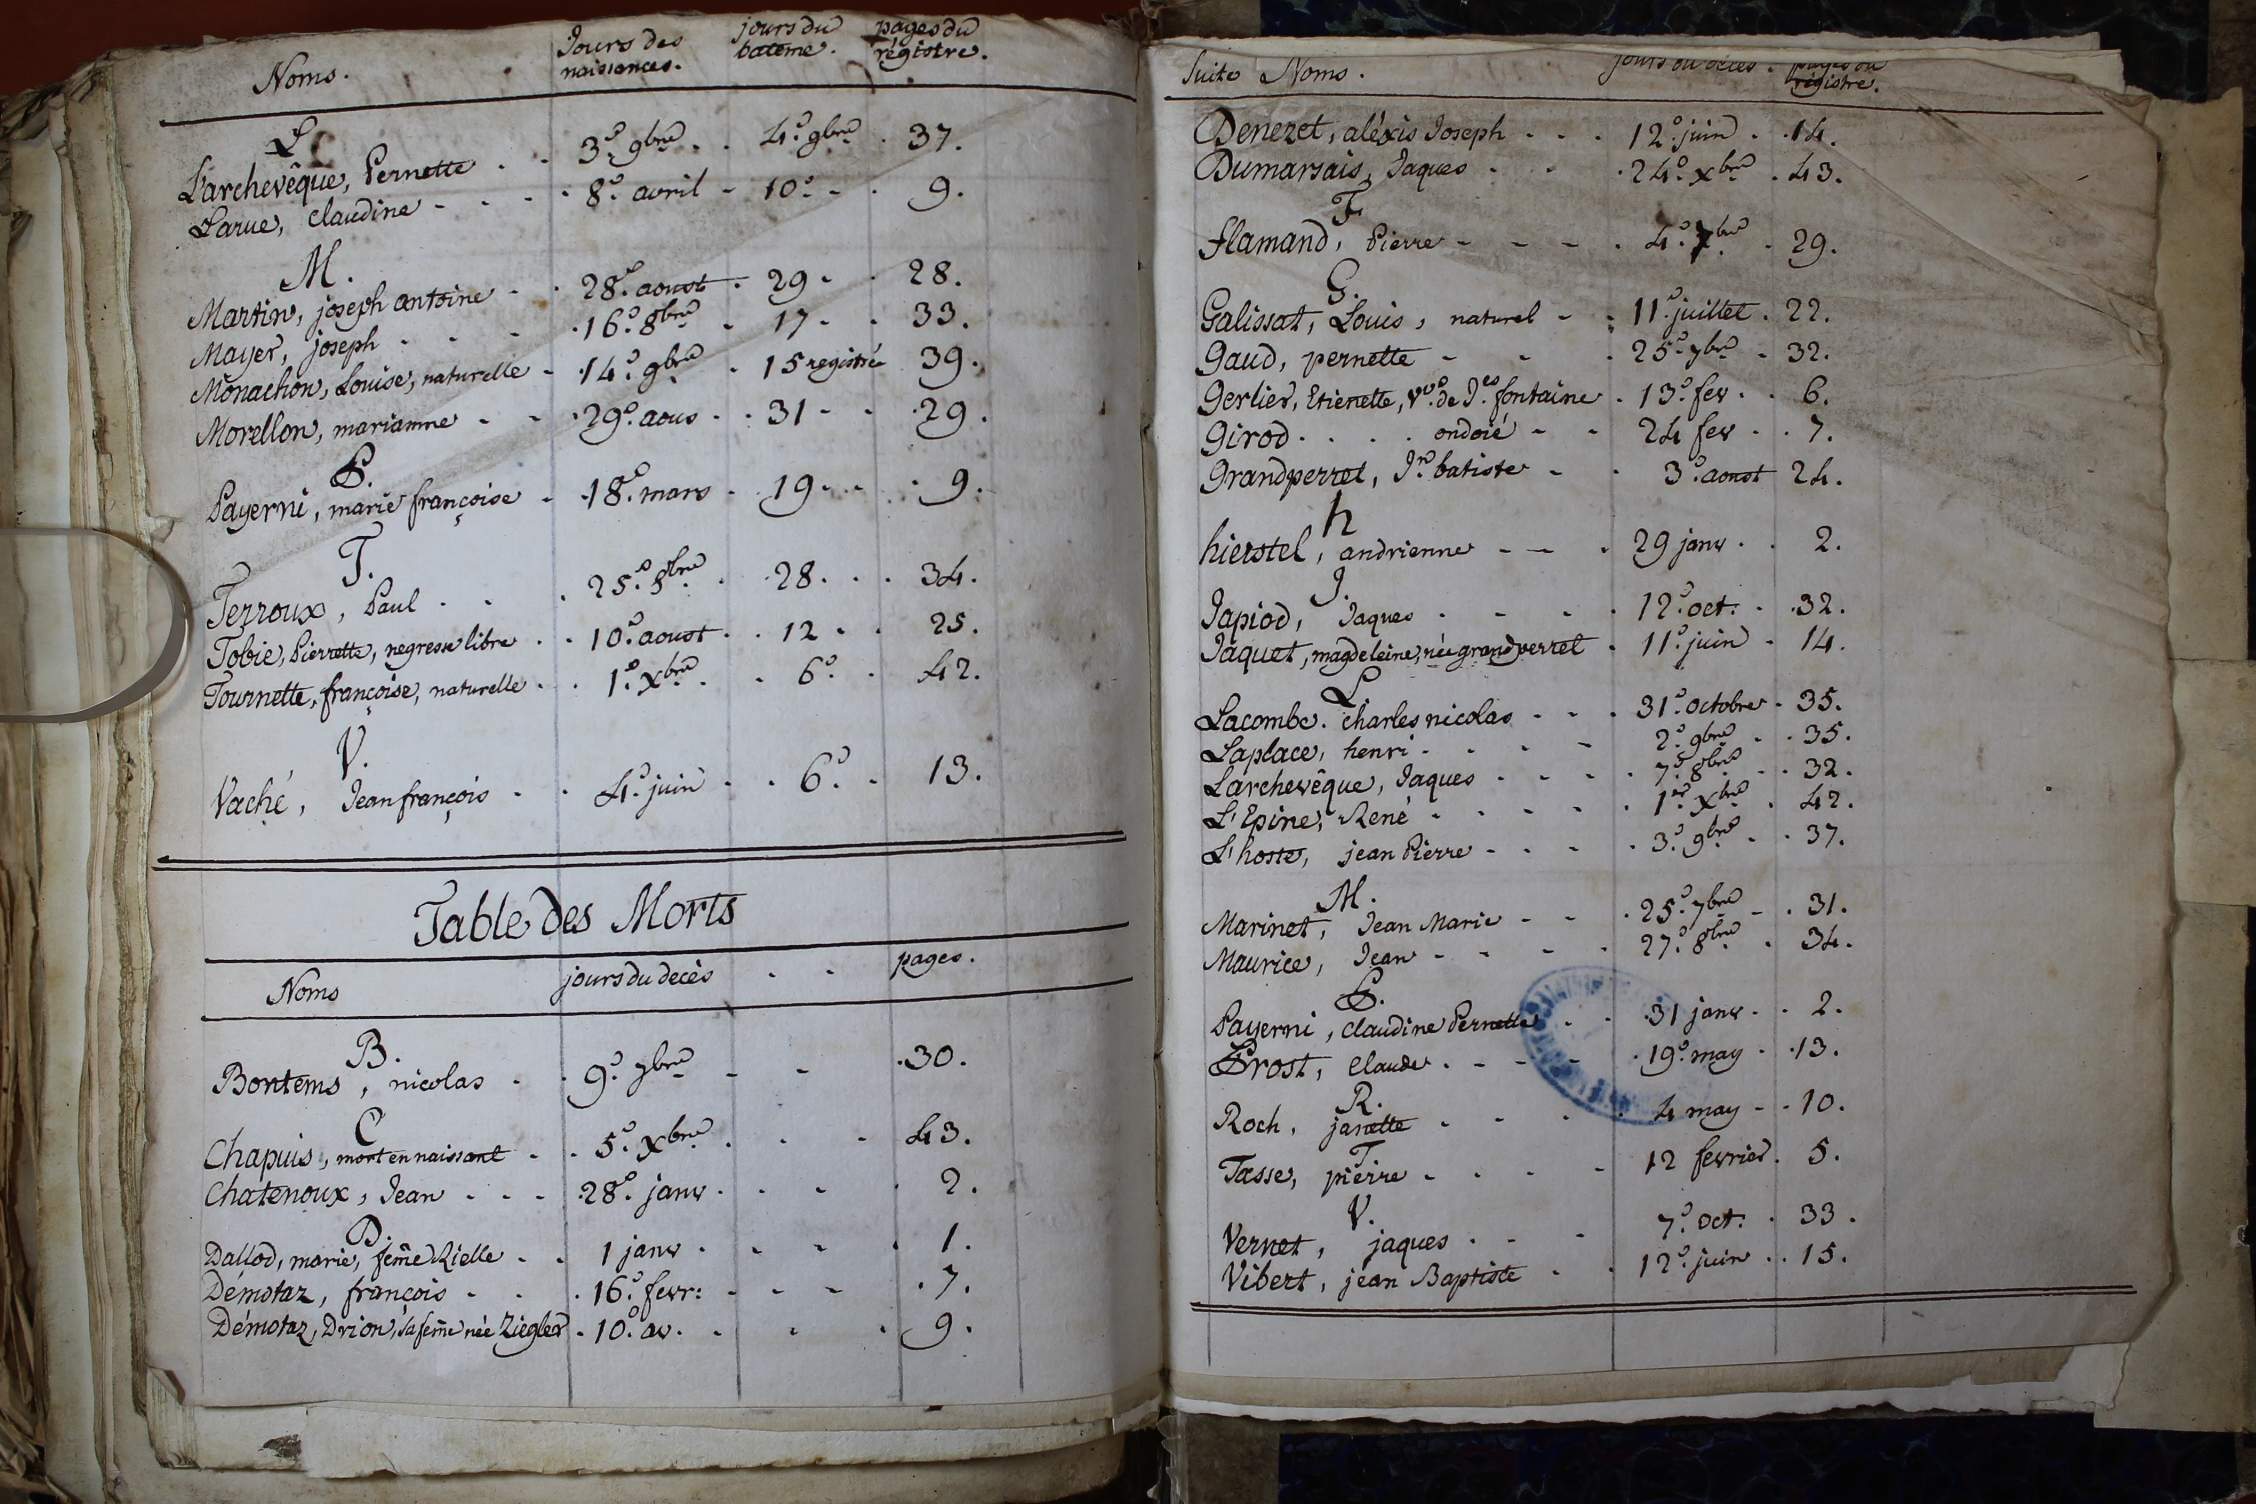 Noms. Jours des naissances. jours du bateme. pages du régistre.
L
Larchevêque, Pernette 3.º 9bre 4.º 9bre 37.
Larue, claudine 8.º avril 10.º 9.
M.
Martin, joseph antoine 28.º aoust 29 28.
Mayer, joseph 16.º 8bre 17 33.
Monachon, Louise, naturelle 14.º 9bre 15 registré 39.
Morellon, marianne 29.º aous 31 29.
P.
Payerni, marie françoise 18.º mars 19 9.
T.
Terroux, Paul 25.º 8bre 28 34.
Tobie, Pierrette, negresse libre 10.º aoust 12 25.
Tournette, françoise, naturelle 1.º Xbre 6.º 42.
V.
Vaché, Jean françois 4.º juin 6.º 13.
Table des Morts
Noms jours du decès pages.
B.
Bontems, nicolas 9.º 7bre 30.
C
Chapuis, mort en naissant 5.º Xbre 43.
Chatenoux, Jean 28.º janv 2.
D.
Dallod, marie, feme Rielle 1 janv 1.
Démotaz, françois 16.º fevr: 7.
Démotaz, Drion, sa feme née Ziegler 10.º av. 9.
Suite Noms. jours du décès. pages du régistre.
Denezet, aléxis Joseph 12.º juin 14.
Dumarsais, Jaques 24.º Xbre 43.
F
flamand, Pierre 4.º 7bre 29.
G.
Galissat, Louis, naturel 11.º juillet 22.
Gaud, pernette 25.º 7bre 32.
Gerlier, Etienette, Vve. de Jes. fontaine 13.º fev 6.
Girod ondoié 24 fev 7.
Grandperret, Jn. batiste 3.º aoust 24.
h
hierstel, andrienne 29 janv 2.
J.
Japiod, Jaques 12.º oct: 32.
Jaquet, magdeleine, née grandperret 11.º juin 14.
L
Lacombe. charles nicolas 31.º octobre 35.
Laplace, henri 2.º 9bre 35.
Larchevêque, Jaques 7.º 8bre 32.
L'Epine, René 1er Xbre 42.
L'hoste, jean Pierre 3.º 9bre 37.
M.
Marinet, Jean Marie 25.º 7bre 31.
Maurice, Jean 27.º 8bre 34.
P.
Payerni, claudine Pernette 31 janv 2.
Prost, claude 19.º may 13.
R.
Roch, janette 4 may 10.
T
Tasse, pierre 12 fevrier 5.
V.
Vernet, jaques 7.º oct: 33.
Vibert, jean Baptiste 12.º juin 15.